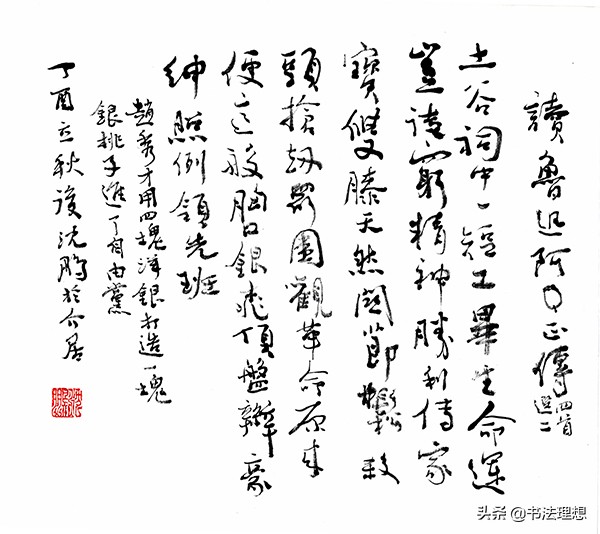 讀魯迅阿Q正傳 四首選二
土谷祠中一短工畢生命運
豈窮精神勝利傳家
寶雙膝天然關節鬆殺
頭搶劫圍觀革命原來
便這般胸口銀桃頂盤辮豪
紳照例領先班
趙秀才用四塊洋銀打造一塊
銀桃子進了自由黨
丁酉立秋後沈鵬於介居
头条 @书法理想